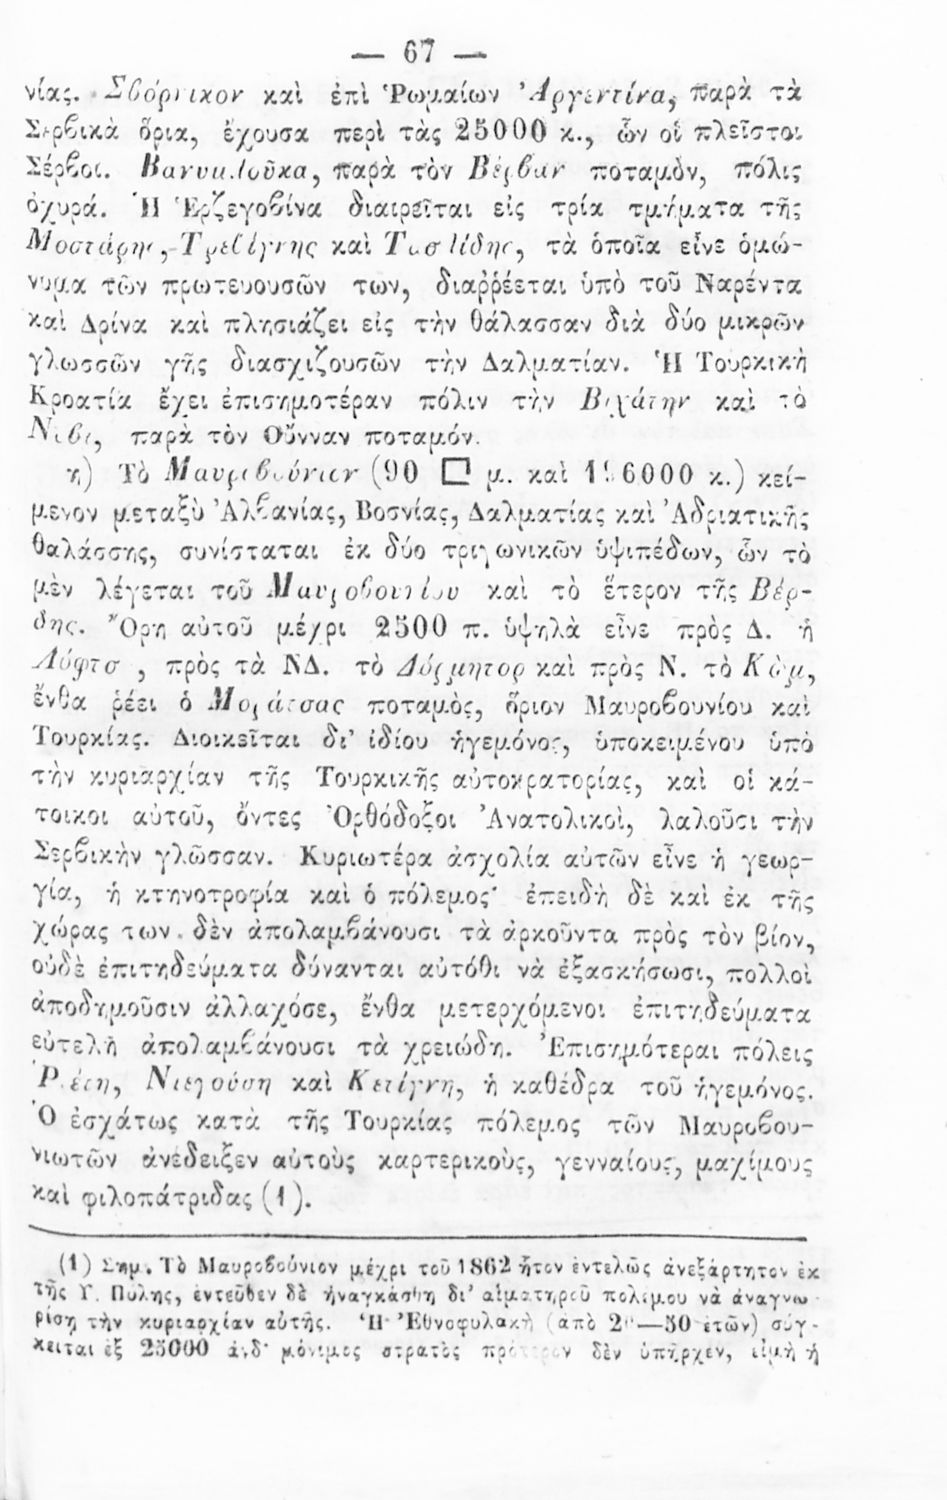 — 67 —
νίας. Σβόρνικον καὶ ἐπὶ Ῥωμαίων Ἀργεντίνα, παρὰ τὰ
Σερβικὰ ὅρια, ἔχουσα περὶ τὰς 25000 κ., ὧν οἱ πλεῖστοι
Σέρβοι. Βανυαλοῦκα, παρὰ τὸν Βέρβαν ποταμὸν, πόλις
ὀχυρά. Ἡ Ἑρζεγοβίνα διαιρεῖται εἰς τρία τμήματα τῆς
Μοστάρης, Τρεβίγνης καὶ Τασλίδης, τὰ ὁποῖα εἶνε ὁμώ-
νυμα τῶν πρωτευουσῶν των, διαῤῥέεται ὑπὸ τοῦ Ναρέντα
καὶ Δρίνα καὶ πλησιάζει εἰς τὴν θάλασσαν διὰ δύο μικρῶν
γλωσσῶν γῆς διασχιζουσῶν τὴν Δαλματίαν. Ἡ Τουρκικὴ
Κροατία ἔχει ἐπισημοτέραν πόλιν τὴν Βιχάτην καὶ τὸ
Νόβι, παρὰ τὸν Οὔνναν ποταμόν.
η) Τὸ Μαυροβούνιον (90 □ μ. καὶ 196000 κ.) κεί-
μενον μεταξὺ Ἀλβανίας, Βοσνίας, Δαλματίας καὶ Ἀδριατικῆς
θαλάσσης, συνίσταται ἐκ δύο τριγωνικῶν ὑψιπέδων, ὧν τὸ
μὲν λέγεται τοῦ Μαυροβουνίου καὶ τὸ ἕτερον τῆς Βέρ-
δης. Ὄρη αὐτοῦ μέχρι 2500 π. ὑψηλὰ εἶνε πρὸς Δ. ἡ
πρὸς τὰ ΝΔ. τὸ Δόρμητορ καὶ πρὸς Ν. τὸ Κὸμ,
ἔνθα ῥέει ὁ Μοράτσας ποταμὸς, ὅριον Μαυροβουνίου καὶ
Τουρκίας. Διοικεῖται δι’ ἰδίου ἡγεμόνος, ὑποκειμένου ὑπὸ
τὴν κυριαρχίαν τῆς Τουρκικῆς αὐτοκρατορίας, καὶ οἱ κά-
τοικοι αὐτοῦ, ὄντες Ὀρθόδοξοι Ἀνατολικοὶ, λαλοῦσι τὴν
Σερβικὴν γλῶσσαν. Κυριωτέρα ἀσχολία αὐτῶν εἶνε ἡ γεωρ-
γία, ἡ κτηνοτροφία καὶ ὁ πόλεμος· ἐπειδὴ δὲ καὶ ἐκ τῆς
χώρας των δὲν ἀπολαμβάνουσι τὰ ἀρκοῦντα πρὸς τὸν βίον,
οὐδὲ ἐπιτηδεύματα δύνανται αὐτόθι νὰ ἐξασκήσωσι, πολλοὶ
ἀποδημοῦσιν ἀλλαχόσε, ἔνθα μετερχόμενοι ἐπιτηδεύματα
εὐτελῆ ἀπολαμβάνουσι τὰ χρειώδη. Ἐπισημότεραι πόλεις
Ῥιέκη, Νιεγούση καὶ Κετίγνη, ἡ καθέδρα τοῦ ἡγεμόνος.
Ὁ ἐσχάτως κατὰ τῆς Τουρκίας πόλεμος τῶν Μαυροβου-
νιωτῶν ἀνέδειξεν αὐτοὺς καρτερικοὺς, γενναίους, μαχίμους
καὶ φιλοπάτριδας (1).
(1) Σημ. Τὸ Μαυροβούνιον μέχρι τοῦ 1862 ἦτον ἐντελῶς ἀνεξάρτητον ἐκ
τῆς Υ. Πύλης, ἐντεῦθεν δὲ ἠναγκάσθη δι’ αἱματηροῦ πολέμου νὰ ἀναγνω-
ρίσῃ τὴν κυριαρχίαν αὐτῆς. Ἡ Ἐθνοφυλακὴ (ἀπὸ 20—50 ἐτῶν) σύγ-
κειται ἐξ 25000 ἀνδ· μόνιμος στρατὸς πρότερον δὲν ὑπῆρχεν, εἰμὴ ἡ